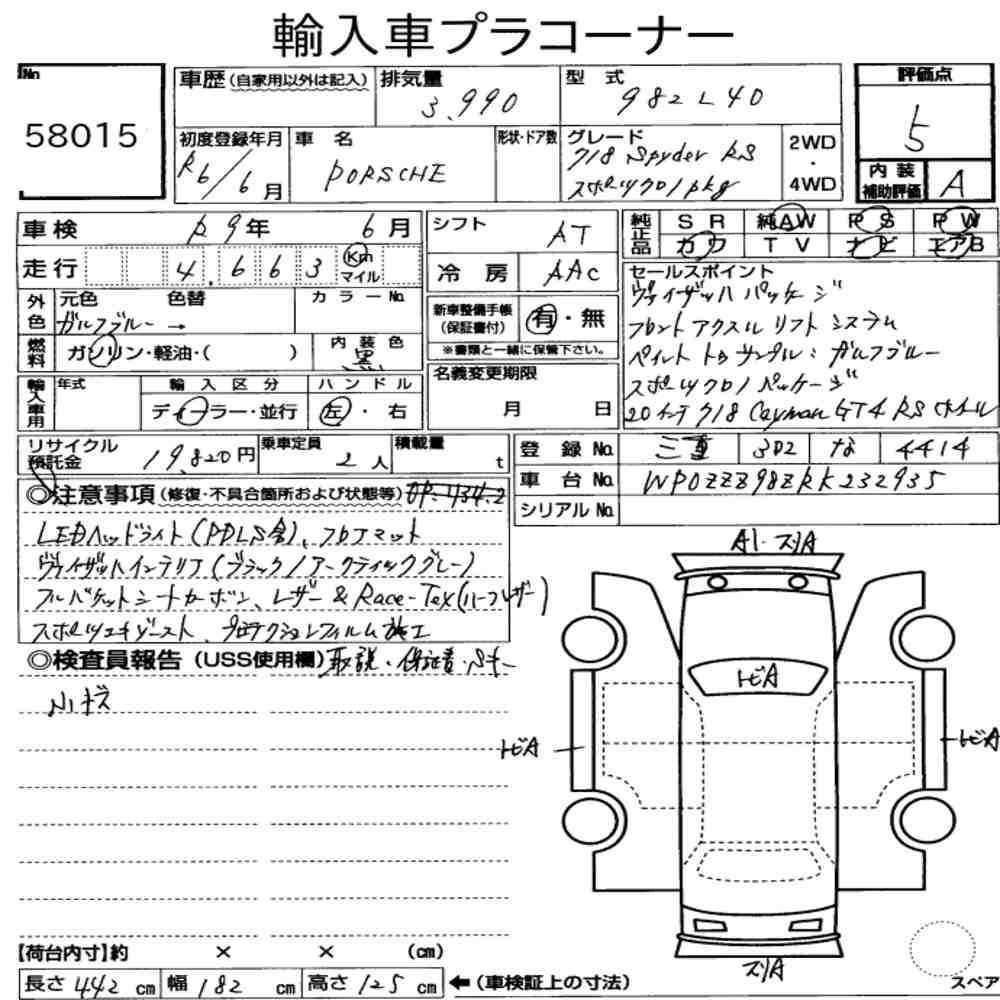 輸入車プラコーナー
No 58015
車歴(自家用以外は記入) 排気量 3,990 型式 982L40
初度登録年月 R6/6月 車名 PORSCHE 形状・ドア数 グレード 718 Spyder RS スポーツクロノpkg 2WD・4WD
評価点 5
内装補助評価 A
車検 R9年 6月
走行 4,663 Km マイル
外色 元色 色替 カラーNo.
ガルフブルー→
燃料 ガソリン・軽油・( ) 内装色 黒
輸入車用 年式 輸入区分 ハンドル
ディーラー・並行 左・右
リサイクル預託金 19,820円 乗車定員 2人 積載量 t
シフト AT
冷房 AAC
新車整備手帳(保証書付) 有・無
※書類と一緒に保管下さい。
名義変更期限
月 日
純正品 SR 純AW PS PW
カワ TV ナビ エアB
セールスポイント
ヴァイザッハパッケージ
フロントアクスルリフトシステム
ペイントトゥサンプル:ガルフブルー
スポーツクロノパッケージ
20インチ718 Cayman GT4 RSホイール
登録No. 三重 302 な 4414
車台No. WP0ZZZ98ZRK232935
シリアルNo.
◎注意事項(修復・不具合箇所および状態等) OP=434.2
LEDヘッドライト(PDLS含)、フロアマット
ヴァイザッハインテリア(ブラック/アークティックグレー)
フルバケットシートカーボン、レザー&Race-Tex(ハーフレザー)
スポーツエキゾースト、プロテクションフィルム施工
◎検査員報告(USS使用欄) 取説・保証書・Sキー
小キズ
A1・スリA
トビA
トビA
トビA
スリA
【荷台内寸】約 × × (cm)
長さ 442 cm 幅 182 cm 高さ 125 cm ←(車検証上の寸法)
スペア